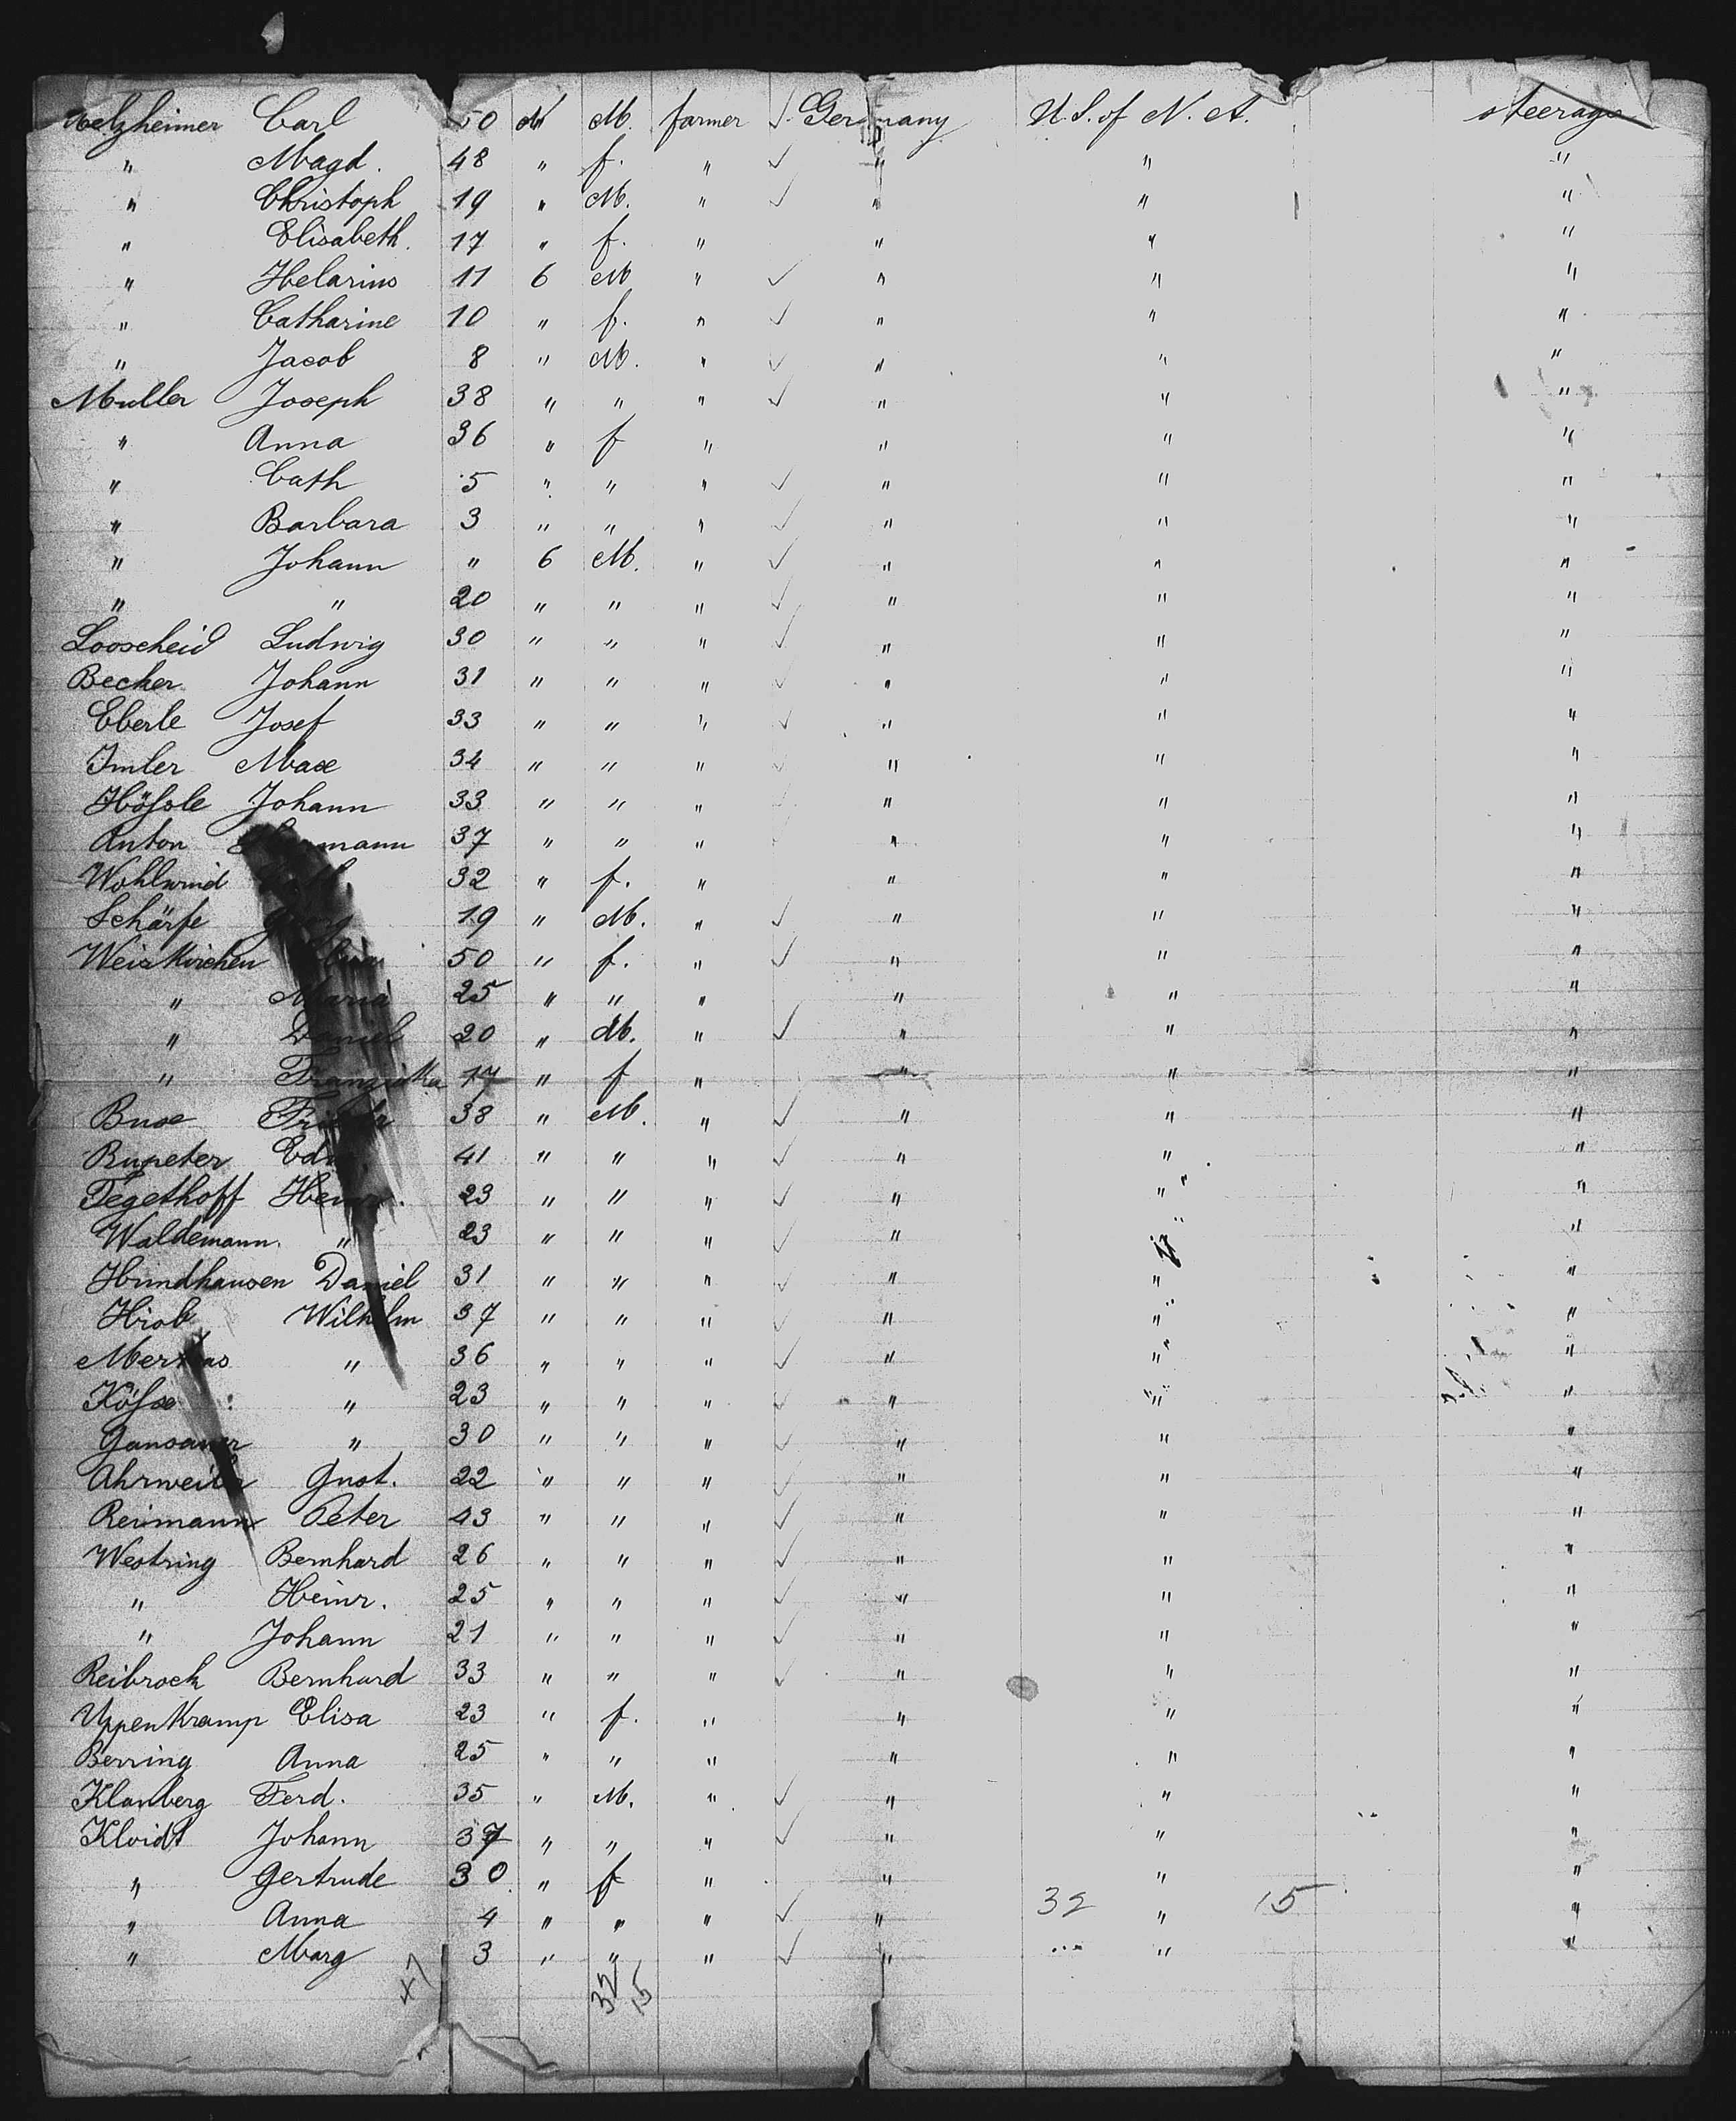 Melzheimer Carl 50 M M. farmer ✓ Germany U.S. of N. A. steerage
" Magd. 48 " f. " ✓ " " "
" Christoph 19 " M. " ✓ " " "
" Elisabeth. 17 " f. " " " "
" Helarius 11 6 M " ✓ " " "
" Catharine 10 " f. " ✓ " " "
" Jacob 8 " M. " ✓ " " "
Muller Joseph 38 " " " ✓ " " "
" Anna 36 " f " " " "
" Cath 5 " " " ✓ " " "
" Barbara 3 " " " ✓ " " "
" Johann " 6 M. " ✓ " " "
" " 20 " " " ✓ " " "
Looscheid Ludwig 30 " " " ✓ " " "
Becker Johann 31 " " " ✓ " " "
Eberle Josef 33 " " " ✓ " " "
Imler Max 34 " " " ✓ " " "
Hößle Johann 33 " " " " " "
Anton 37 " " " " " "
Wohlwind 32 " f. " " " "
Schärfe Georg 19 " M. " ✓ " " "
Weiskirchen 50 " f. " ✓ " " "
" Maria 25 " " " " " "
" Daniel 20 " M. " ✓ " " "
" Franziska 17 " f " " " "
Buse 38 " M. " ✓ " " "
Bupeter 41 " " " ✓ " " "
Tegethoff Heinr. 23 " " " ✓ " " "
Waldemann " 23 " " " ✓ " " "
Hundhausen Daniel 31 " " " ✓ " " "
Hiob Wilhelm 37 " " " ✓ " " "
" 36 " " " ✓ " " "
Köße " 23 " " " ✓ " " "
Gansauer " 30 " " " ✓ " " "
Ahrweiler Gust. 22 " " " ✓ " " "
Reimann Peter 43 " " " ✓ " " "
Westring Bernhard 26 " " " ✓ " " "
" Heinr. 25 " " " ✓ " " "
" Johann 21 " " " ✓ " " "
Reibrock Bernhard 33 " " " ✓ " " "
Uppenkramp Elisa 23 " f. " " " "
Berring Anna 25 " " " " " "
Klanberg Ferd. 35 " M. " ✓ " " "
Kloidt Johann 37 " " " ✓ " " "
" Gertrude 30 " f " " " "
" Anna 4 " " " ✓ " 32 " 15 "
" Marg 3 " " " ✓ " " "
47 32 15